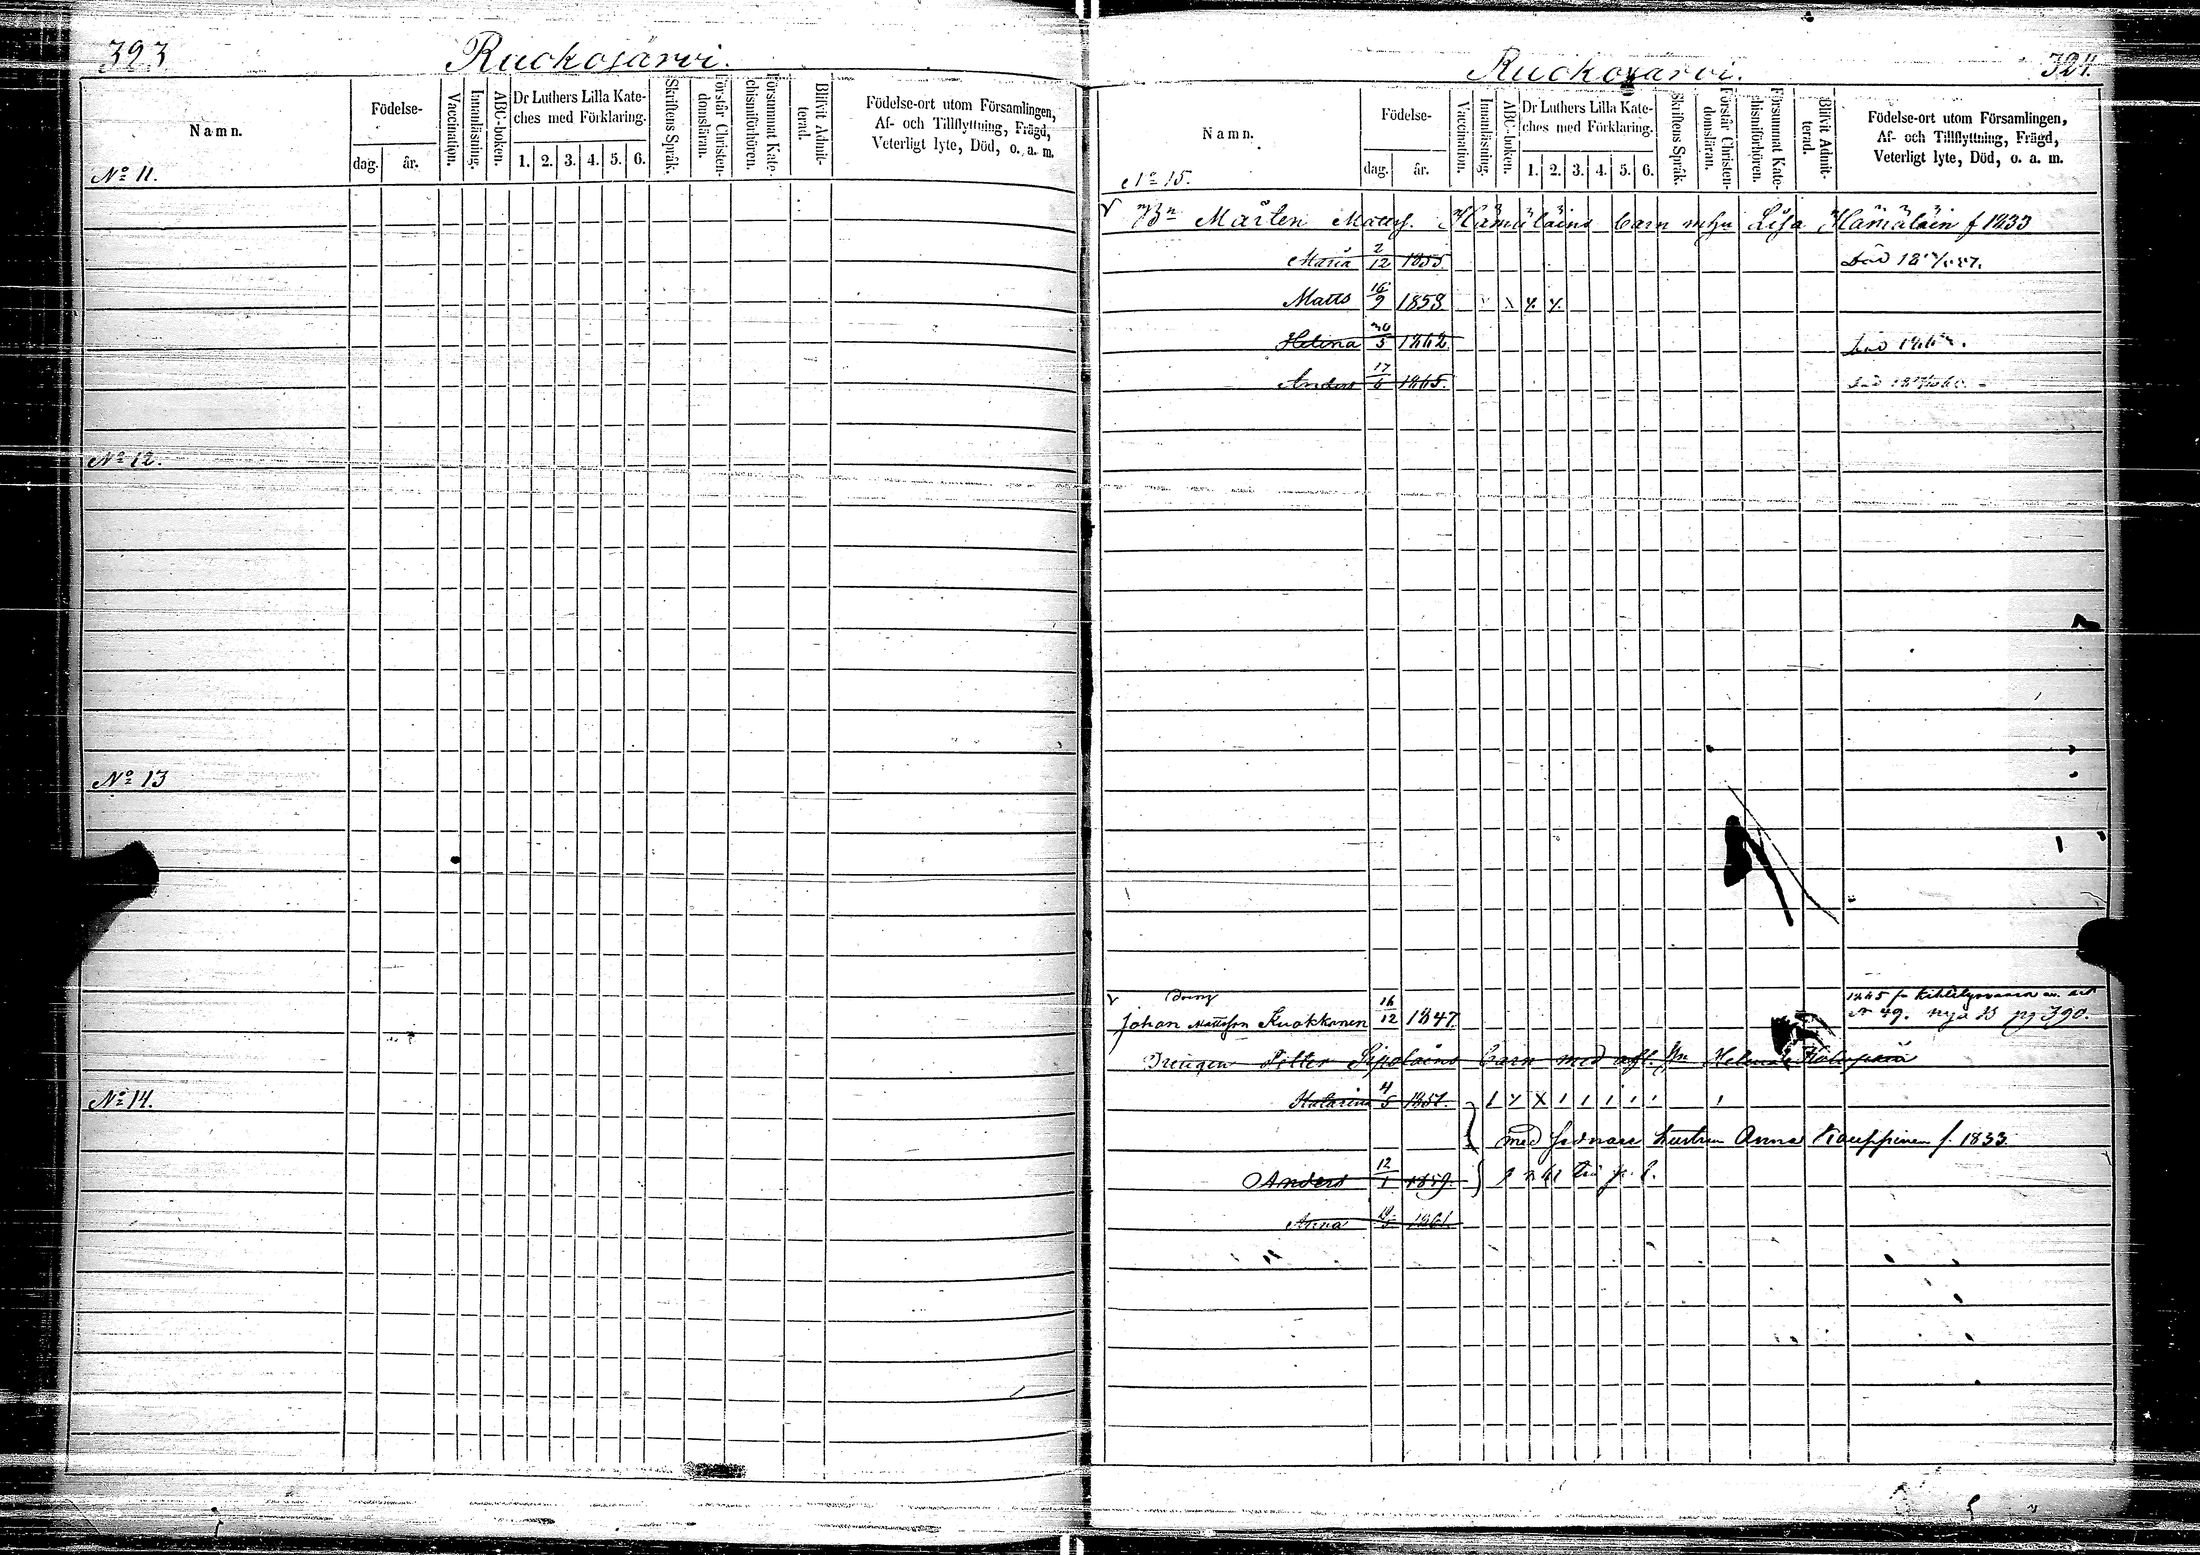 323
Ruokojärvi.
Namn.
Födelse-
dag.
år.
Vaccination.
Innanläsning.
ABC-boken.
Dr Luthers Lilla Kate-
ches med Förklaring.
1. 2. 3. 4. 5. 6.
Skriftens Språk.
Förstår Christen-
domsläran.
Försummat Kate-
chismiförhören.
Blifvit Admit-
terad.
Födelse-ort utom Församlingen,
Af- och Tillflyttning, Frägd,
Veterligt lyte, Död, o. a. m.
No 11.
No 12.
No 13
No 14.
Ruokojärvi.
324.
Namn.
Födelse-
dag.
år.
Vaccination.
Innanläsning.
ABC-boken.
Dr Luthers Lilla Kate-
ches med Förklaring.
1. 2. 3. 4. 5. 6.
Skriftens Språk.
Förstår Christen-
domsläran.
Försummat Kate-
chismiförhören.
Blifvit Admit-
terad.
Födelse-ort utom Församlingen,
Af- och Tillflyttning, Frägd,
Veterligt lyte, Död, o. a. m.
No 15.
Mårten Hämäläins barn Lisa Hämäläin f 1833
Maria 2/12 1855. Död
Matts 16/9 1858.
Helena 30/5 1862. Död
Anders 17/6 1865. Död
Dreng
Johan Mattsson Kuokkanen 16/12 1847. No 49. nya B pg 390.
Drengen Petter Sipoläins barn med Helena
Katarina 4/5 1857.
med hustrun Anna Kauppinen f. 1833.
Anders 12/1 1859.
Anna 1861.